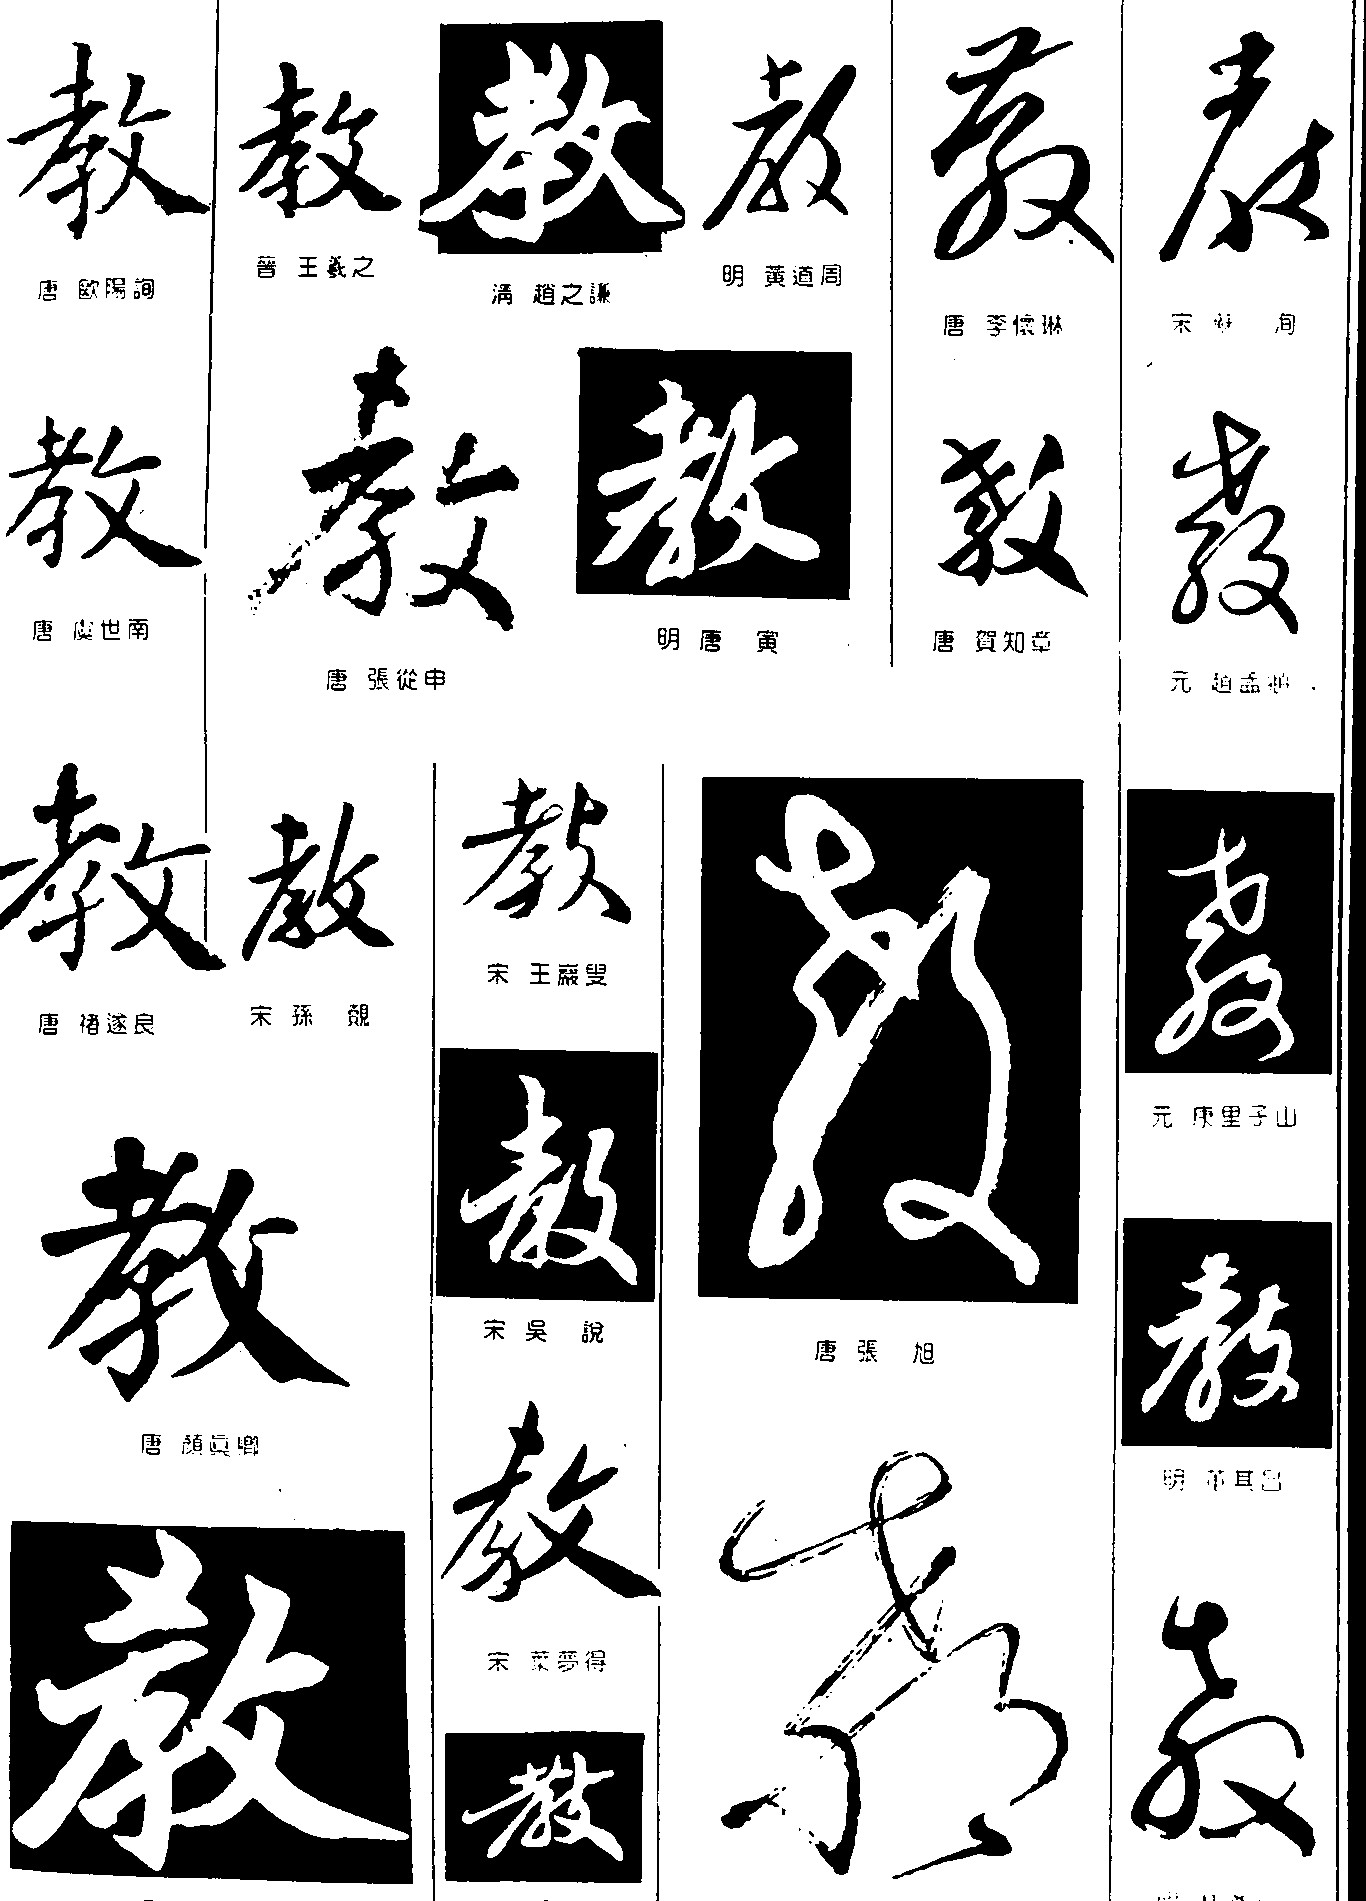 教
唐 歐陽詢
教
晉 王羲之
教
清 趙之謙
教
明 黃道周
教
唐 李懷琳
教
宋 洵
教
唐 虞世南
教
唐 張從申
教
明 唐 寅
教
唐 賀知章
教
元 趙孟頫
教
唐 褚遂良
教
宋 孫 覿
教
宋 王巖叟
教
唐 張 旭
教
元 康里子山
教
唐 顏真卿
教
宋 吳 說
教
明 董其昌
教
宋 葉夢得
教
教
教
教